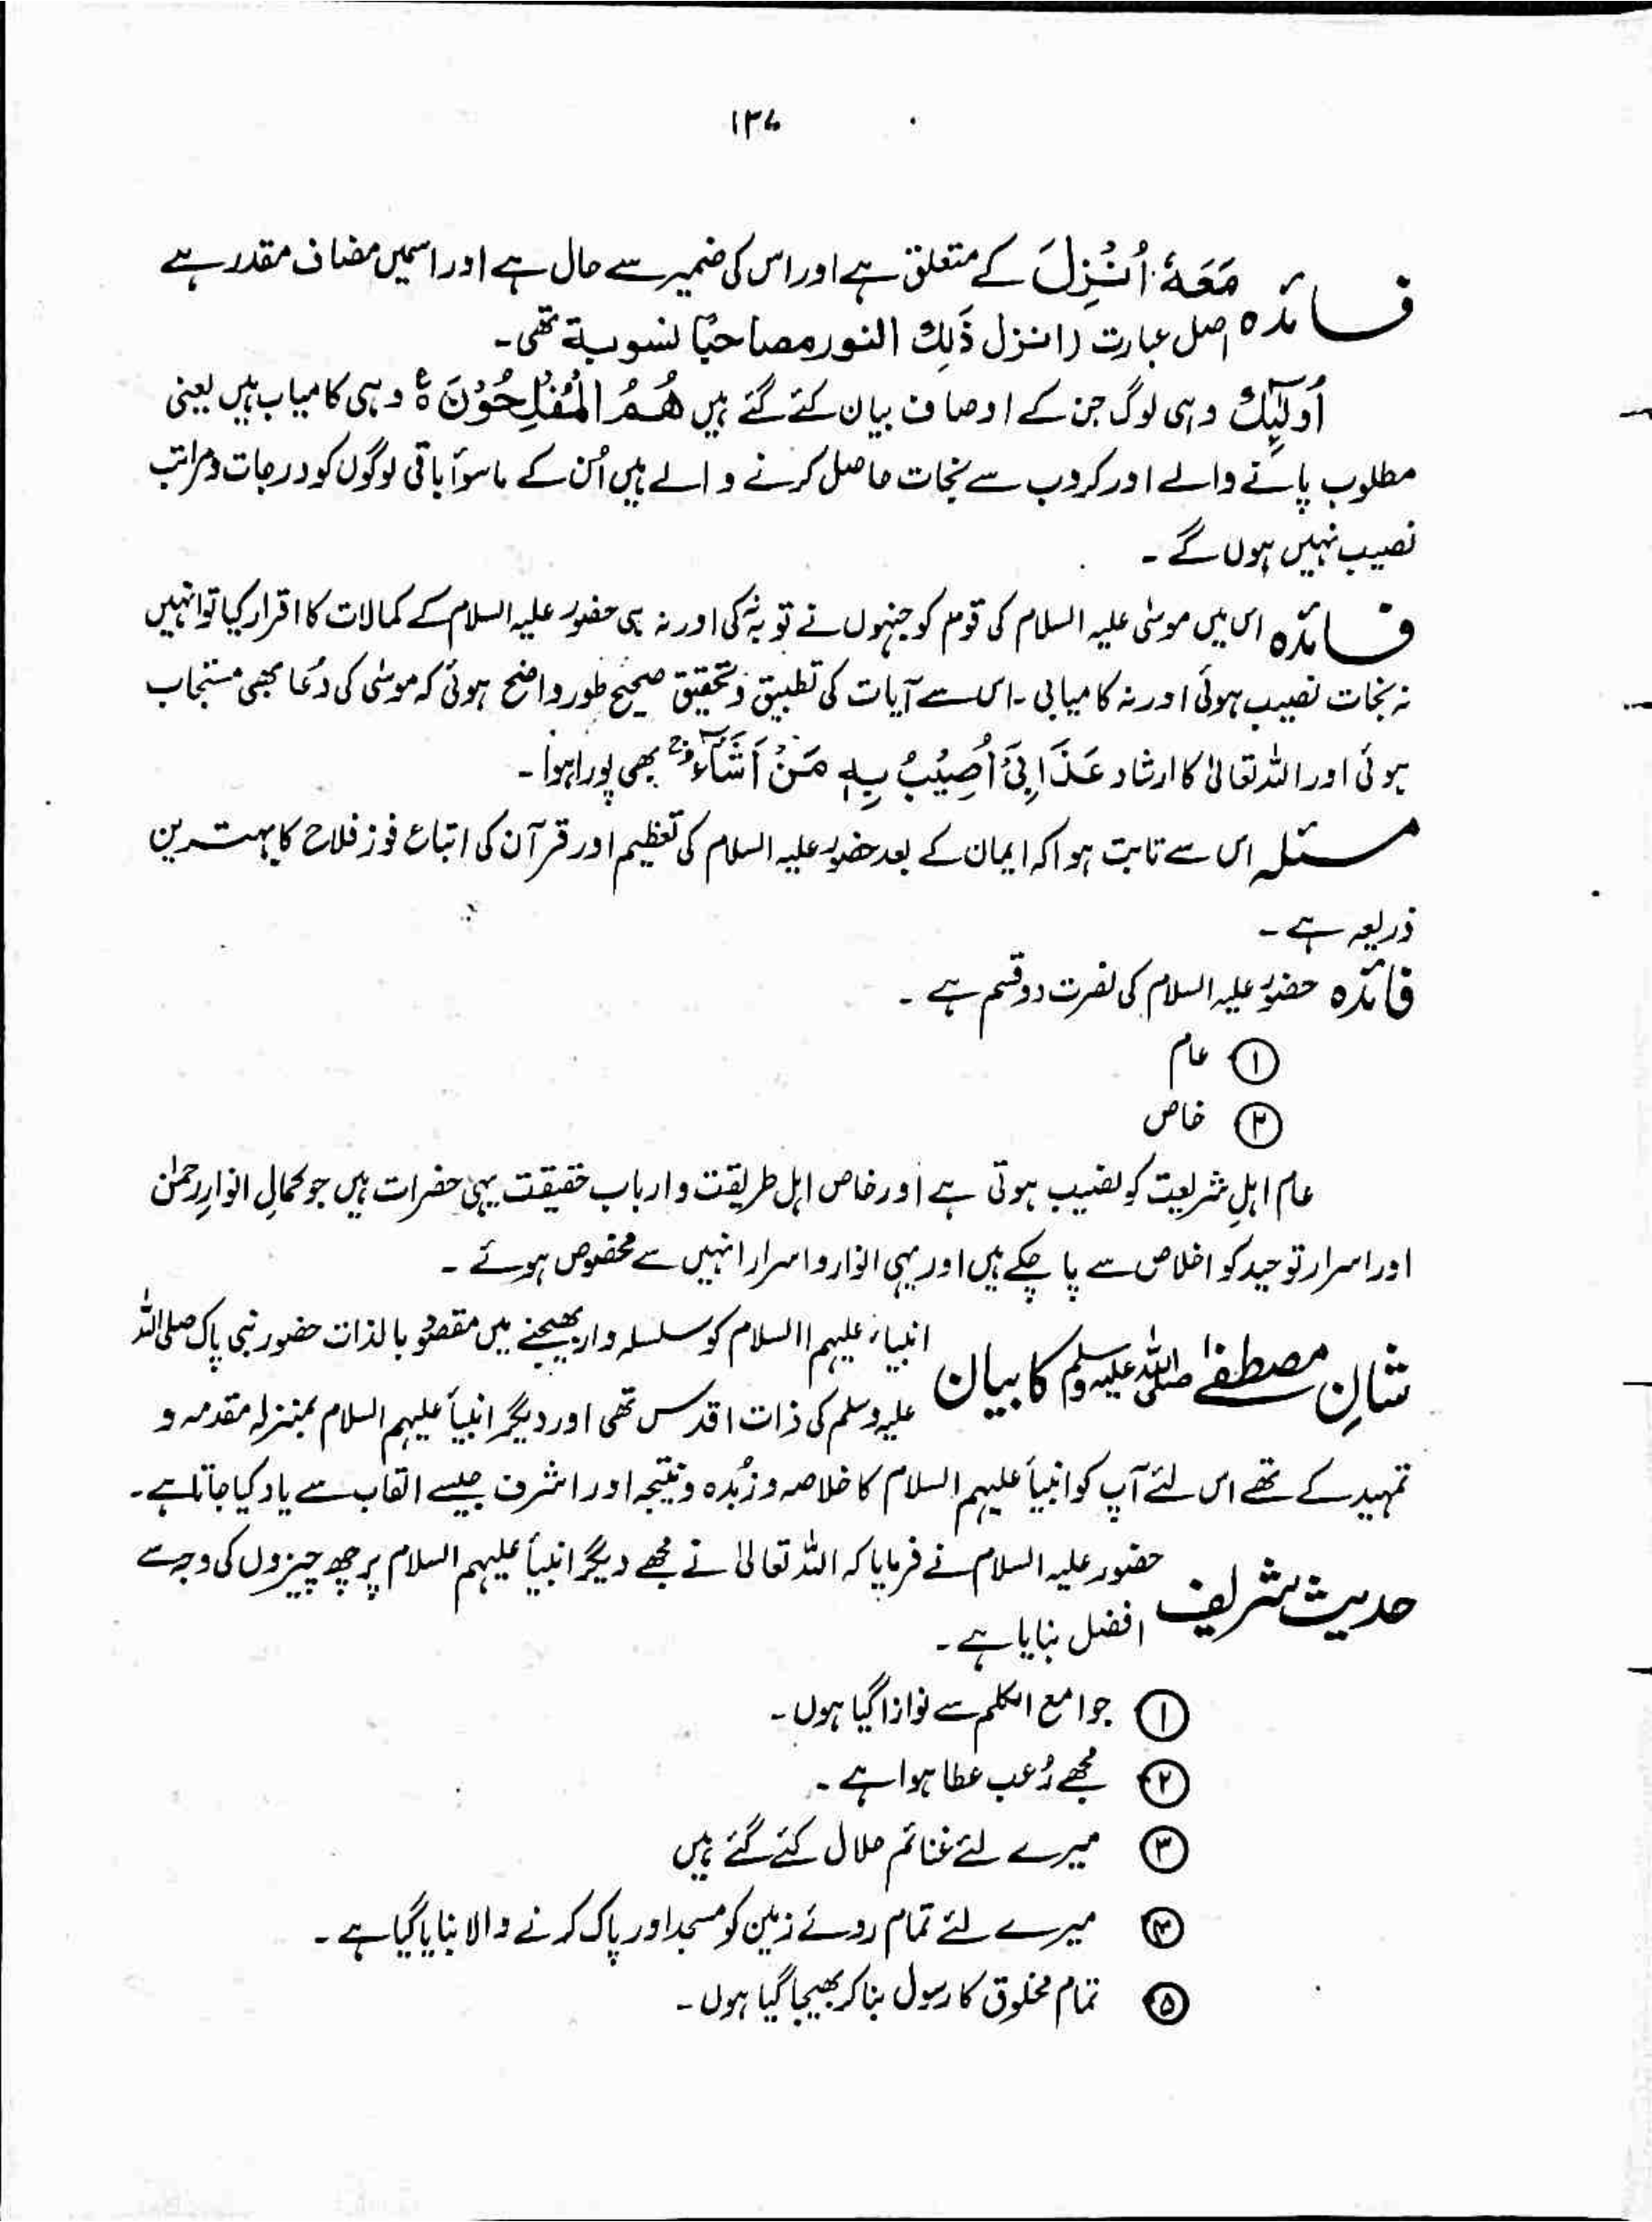 ۱۳۷
فائدہ مَعَهٗ اُنْزِلَ کے متعلق ہے اور اس کی ضمیر سے حال ہے اور اسمیں مضاف مقدر ہے
اصل عبارت (انزل ذَلِكَ النور مصاحبًا لنبوبة تھی۔
اُولٰٓئِكَ وہی لوگ جن کے اوصاف بیان کئے گئے ہیں هُمُ الْمُفْلِحُوْنَ ۧ وہی کامیاب ہیں یعنی
مطلوب پانے والے اور کروب سے نجات حاصل کرنے والے ہیں اُن کے ماسوأ باقی لوگوں کو درجات و مراتب
نصیب نہیں ہوں گے ۔
فائدہ اس میں موسٰی علیہ السلام کی قوم کو جنہوں نے توبہ نہ کی اور نہ ہی حضور علیہ السلام کے کمالات کا اقرار کیا تو انہیں
نہ نجات نصیب ہوئی اور نہ کامیابی ۔ اس سے آیات کی تطبیق و تحقیق صحیح طور واضح ہوئی کہ موسٰی کی دُعا بھی مستجاب
ہوئی اور اللہ تعالیٰ کا ارشاد عَذَابِیْٓ اُصِیْبُ بِهٖ مَنْ اَشَآءُ ۚ بھی پورا ہوا ۔
مسئلہ اس سے ثابت ہوا کہ ایمان کے بعد حضور علیہ السلام کی تعظیم اور قرآن کی اتباع فوز فلاح کا بہترین
ذریعہ ہے ۔
فائدہ حضور علیہ السلام کی نصرت دو قسم ہے ۔
① عام
② خاص
عام اہلِ شریعت کو نصیب ہوتی ہے اور خاص اہل طریقت و ارباب حقیقت یہی حضرات ہیں جو کمالِ انوارِ رحمٰن
اور اسرار توحید کو اخلاص سے پا چکے ہیں اور یہی انوار و اسرار انہیں سے مخصوص ہوئے ۔
شانِ مصطفےٰ صلی اللہ علیہ وسلم کا بیان انبیاء علیہم السلام کو سلسلہ وار بھیجنے میں مقصود بالذات حضور نبی پاک صلی اللہ
علیہ وسلم کی ذات اقدس تھی اور دیگر انبیأ علیہم السلام بمنزلہ مقدمہ و
تمہید کے تھے اس لئے آپ کو انبیأ علیہم السلام کا خلاصہ و زُبدہ و نتیجہ اور اشرف جیسے القاب سے یاد کیا جاتا ہے۔
حدیث شریف حضور علیہ السلام نے فرمایا کہ اللہ تعالیٰ نے مجھے دیگر انبیأ علیہم السلام پر چھ چیزوں کی وجہ سے
افضل بنایا ہے ۔
① جوامع الکلم سے نوازا گیا ہوں ۔
② مجھے رُعب عطا ہوا ہے ۔
③ میرے لئے غنائم حلال کئے گئے ہیں
④ میرے لئے تمام روئے زمین کو مسجد اور پاک کرنے والا بنایا گیا ہے ۔
⑤ تمام مخلوق کا رسول بنا کر بھیجا گیا ہوں ۔